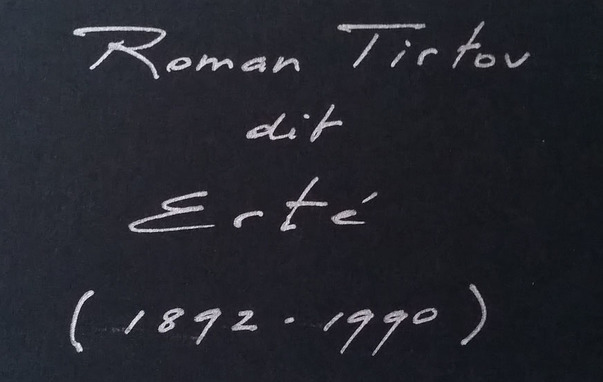 Roman Tirtov
dit
Erté
(1892.1990)